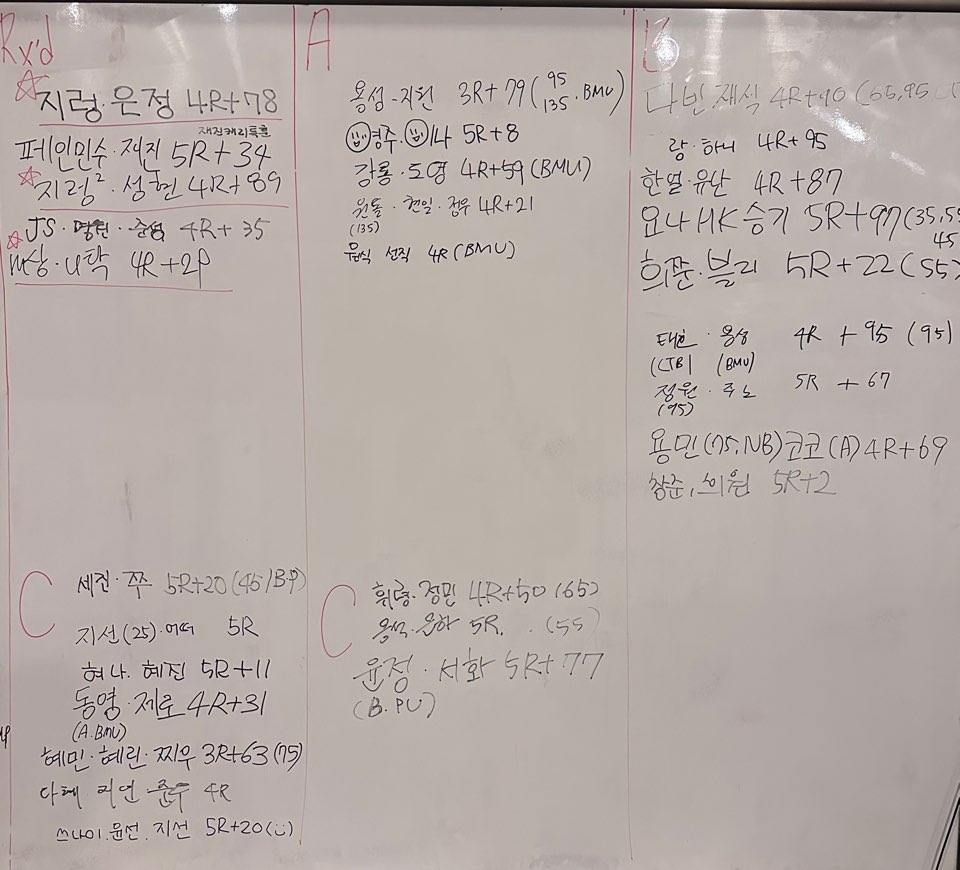 Rx'd
지렁·은정 4R+78
재진캐리특훈
페인민수·재진 5R+34
지렁²·성현 4R+89
JS·명원·준성 4R+35
4R+2P
A
용섭-지원 3R+79(95 135.BMU)
영주·이나 5R+8
강룡·도영 4R+59(BMU)
원돌·현일·정우 4R+21
(135)
원식 선직 4R(BMU)
B
다빈.재식 4R+40(65,95
랑·하니 4R+95
한얼·유산 4R+87
요나 HK 승기 5R+97(35,55
45
희준·블리 5R+22(55)
태한·용성 4R+95(95)
(CTB) (BMU)
정원·주노 5R+67
(95)
용민(75,NB)코코(A)4R+69
창준,희원 5R+2
C
세진·쭈 5R+20(45/B.P)
지선(25)· 5R
허나·혜진 5R+11
동영·제로 4R+31
(A.BMU)
혜민·혜린·찌우 3R+63(75)
준수 4R
쓰나미.윤선.지선 5R+20
C
휘령·정민 4R+50(65)
용석·은하 5R. (55)
윤정·서화 5R+77
(B.PU)